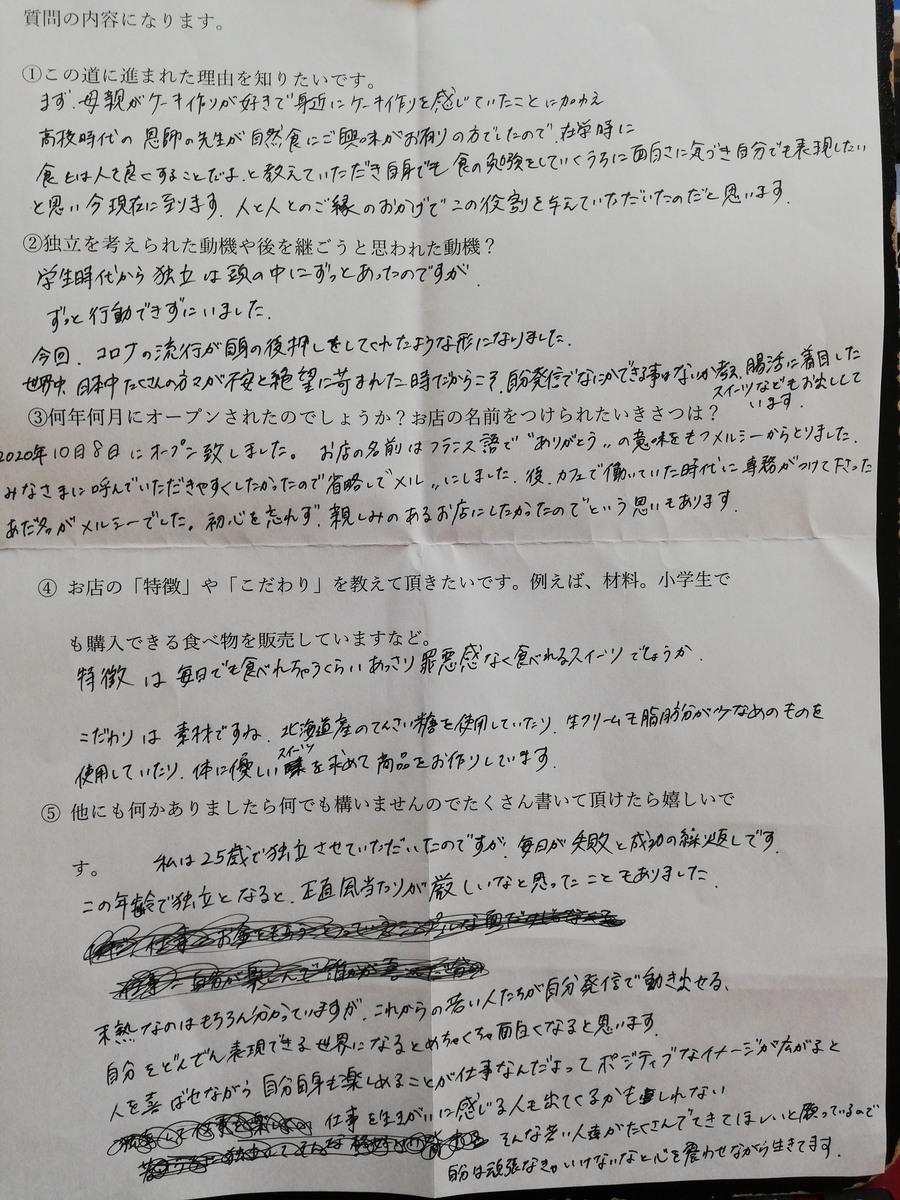 質問の内容になります。
①この道に進まれた理由を知りたいです。
まず、母親がケーキ作りが好きで身近にケーキ作りを感じていたことに加え
高校時代の恩師の先生が自然食にご興味がお有りの方でしたので、在学時に
食とは人を良くすることだよ、と教えていただき自身でも食の勉強をしていくうちに面白さに気づき自分でも表現したい
と思い今現在に到ります。人と人とのご縁のおかげでこの役割を与えていただいたのだと思います。
②独立を考えられた動機や後を継ごうと思われた動機？
学生時代から独立は頭の中にずっとあったのですが、
ずっと行動できずにいました。
今回、コロナの流行が自身の後押しをしてくれたような形になりました。
世界中、日本中たくさんの方々が不安と絶望に苛まれた時だからこそ、自分発信でなにかできる事はないか考え、腸活に着目した
スイーツなどもお出しして
います。
③何年何月にオープンされたのでしょうか？お店の名前をつけられたいきさつは？
2020年10月8日にオープン致しました。 お店の名前はフランス語で〝ありがとう〟の意味をもつメルシーからとりました。
みなさまに呼んでいただきやすくしたかったので省略して〝メル〟にしました。後、カフェで働いていた時代に専務がつけて下さった
あだ名がメルシーでした。初心を忘れず、親しみのあるお店にしたかったのでという思いもあります。
④ お店の「特徴」や「こだわり」を教えて頂きたいです。例えば、材料。小学生で
も購入できる食べ物を販売していますなど。
特徴は毎日でも食べれちゃうくらいあっさり罪悪感なく食べれるスイーツでしょうか。
こだわりは素材ですね、北海道産のてんさい糖を使用していたり、生クリームも脂肪分が少なめのものを
使用していたり、体に優しいスイーツを求めて商品をお作りしています。
⑤ 他にも何かありましたら何でも構いませんのでたくさん書いて頂けたら嬉しいで
す。 私は25歳で独立させていただいたのですが、毎日が失敗と成功の繰り返しです。
この年齢で独立となると、正直風当たりが厳しいなと思ったこともありました。
未熟なのはもちろん分かっていますが、これからの若い人たちが自分発信で動き出せる、
自分をどんどん表現できる世界になるとめちゃくちゃ面白くなると思います。
人を喜ばせながら自分自身も楽しめることが仕事なんだよってポジティブなイメージが広がると
仕事を生きがいに感じる人も出てくるかもしれない
そんな若い人達がたくさんでてきてほしいと願っているので
自分は頑張なきゃいけないなと心を震わせながら生きてます。